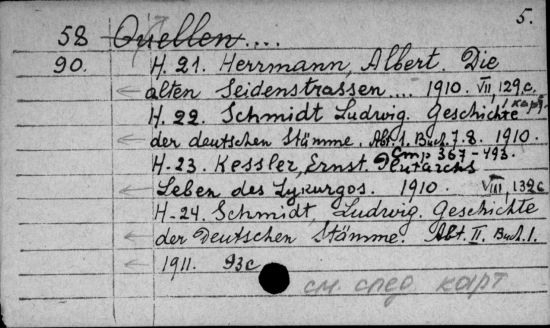 5.
58 Quellen....
90. H. 21. Herrmann, Albert. Die
alten Seidenstrassen.... 1910. VII, 129 c.
карт.
H. 22. Schmidt Ludwig. Geschichte
der deutschen Stämme. Abt. 1. Buch. 7. 8. 1910.
Стр. 367-493.
H-23. Kessler, Ernst. Plutarchs
Leben des Lykurgos. 1910. VIII, 132 c
H-24. Schmidt, Ludwig. Geschichte
der Deutschen Stämme. Abt. II. Buch. 1.
1911. 93 c
см. след карт